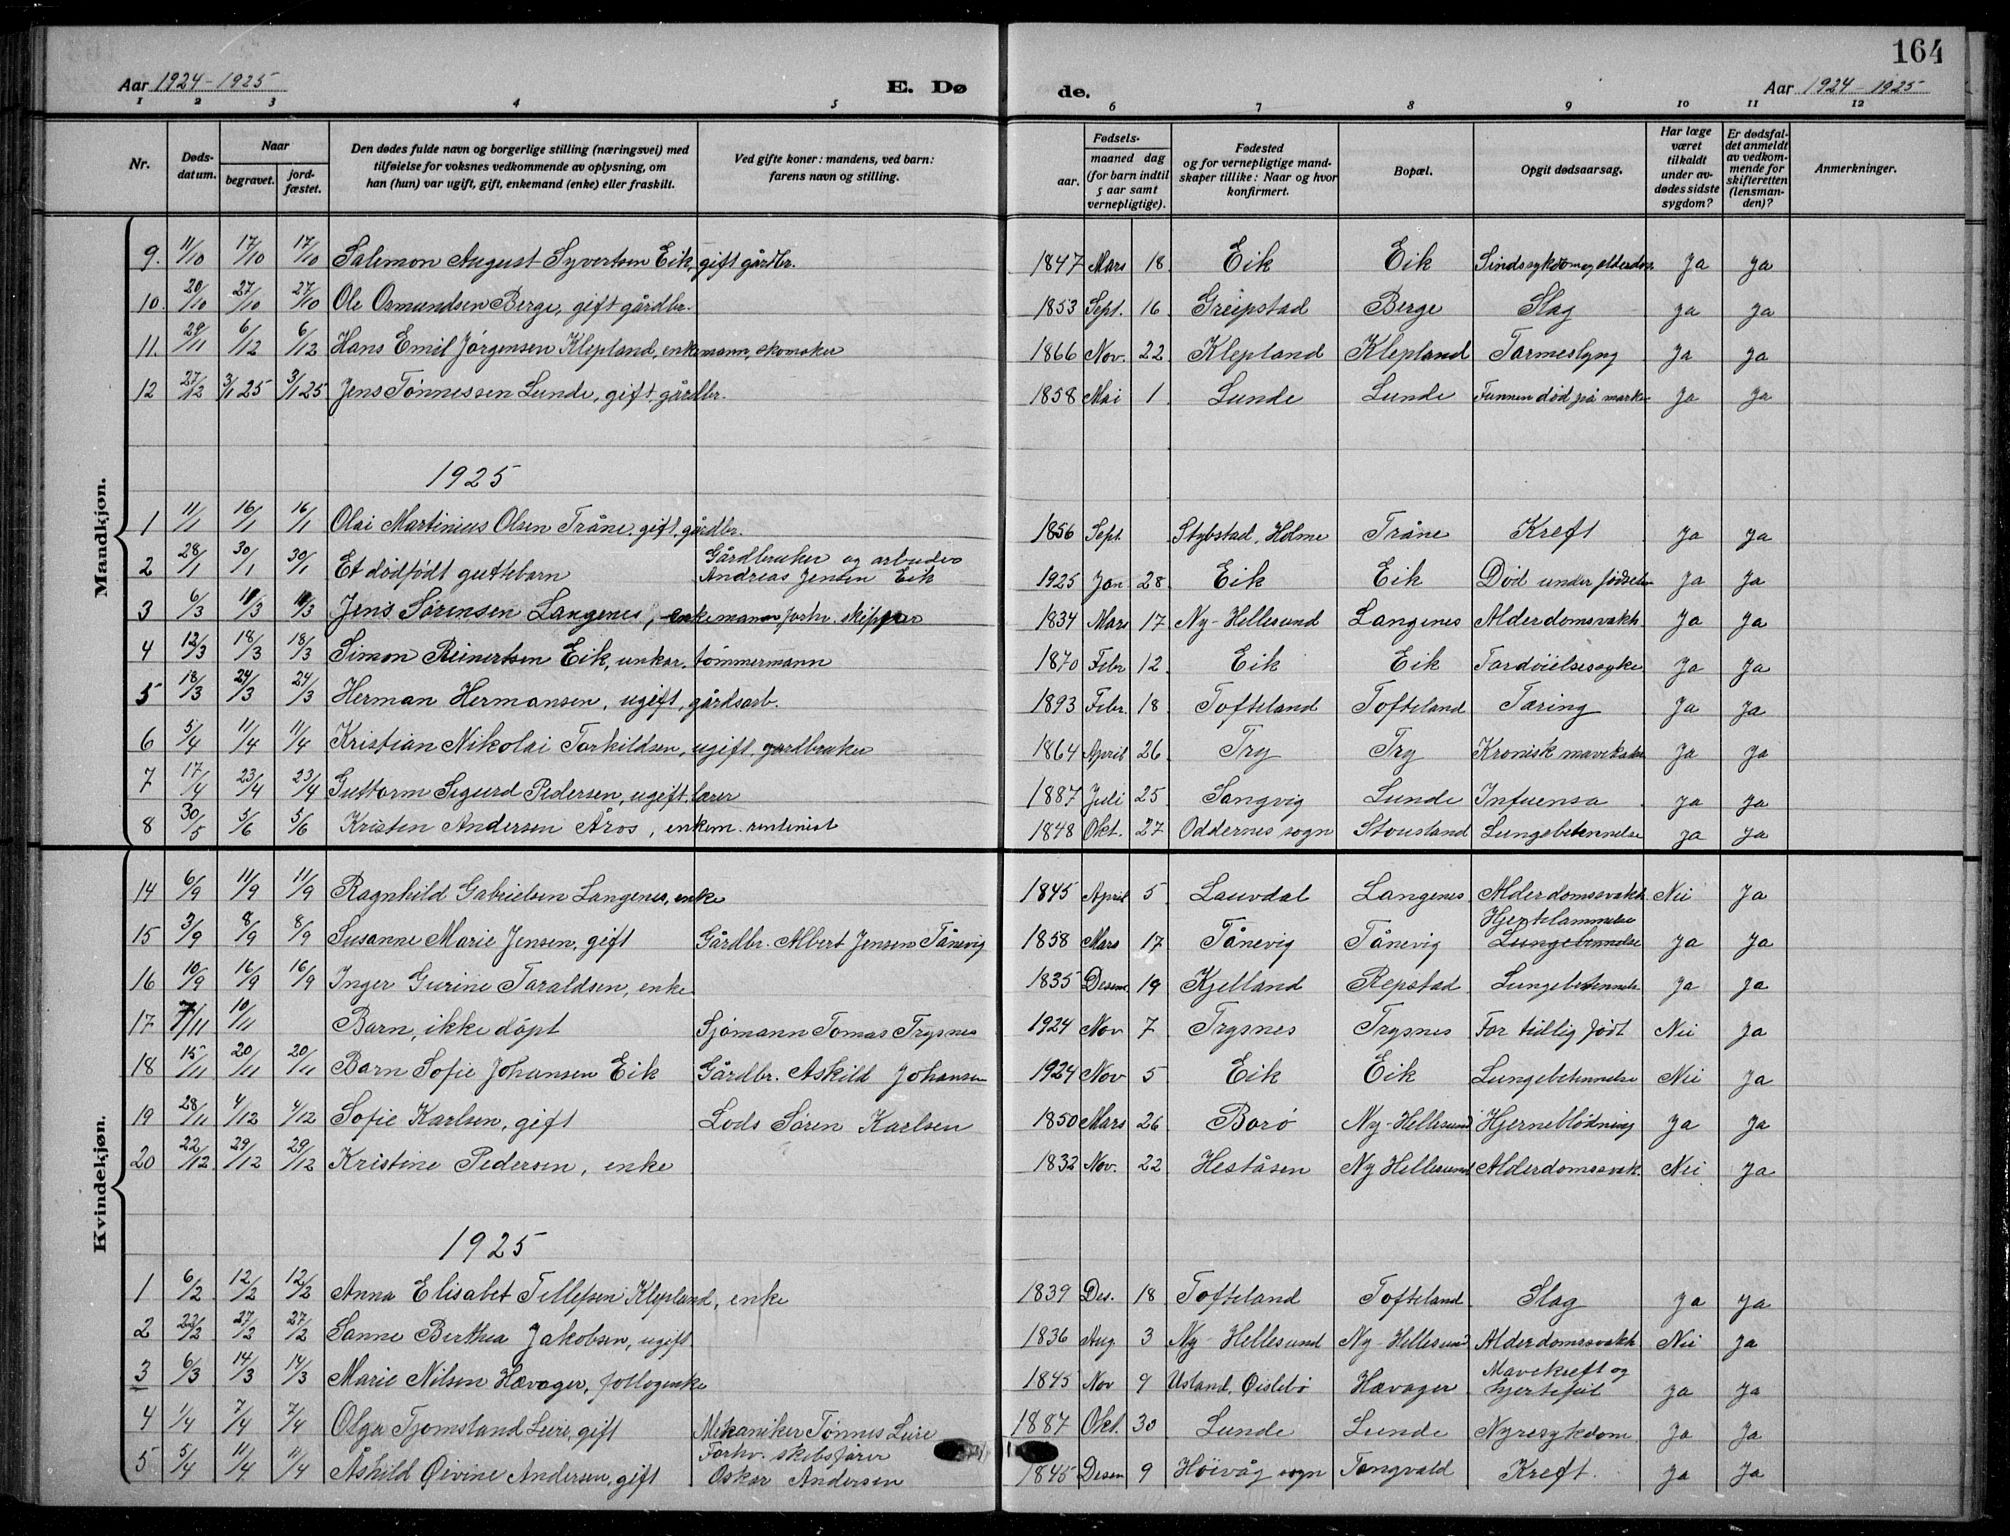 164
Aar 1924-1925
E. Dø
de.
Aar 1924-1925
1 2 3 4 5 6 7 8 9 10 11 12
Nr.
Døds-
datum.
Naar
begravet.
jord-
fæstet.
Den dødes fulde navn og borgerlige stilling (næringsvei) med
tilføielse for voksnes vedkommende av oplysning, om
han (hun) var ugift, gift, enkemand (enke) eller fraskilt.
Ved gifte koner: mandens, ved barn:
farens navn og stilling.
Fødsels-
aar.
maaned dag
(for barn indtil
5 aar samt
vernepligtige).
Fødested
og for vernepligtige mand-
skaper tillike: Naar og hvor
konfirmert.
Bopæl.
Opgit dødsaarsag.
Har læge
været
tilkaldt
under av-
dødes sidste
sygdom?
Er dødsfal-
det anmeldt
av vedkom-
mende for
skifteretten
(lensman-
den)?
Anmerkninger.
Mandkjøn.
9. 11/10 17/10 17/10 Salemon August Syvertsen Eik, gift gårdbr. 1847 Mars 18 Eik Eik Sindssykdom og alderdom Ja Ja
10. 20/10 27/10 27/10 Ole Osmundsen Berge, gift gårdbr. 1853 Sept. 16 Greipstad Berge Slag Ja Ja
11. 29/11 6/12 6/12 Hans Emil Jørgensen Klepland, enkemann, skomaker 1866 Nov. 22 Klepland Klepland Tarmeslyng Ja Ja
12 27/12 3/1 25 3/1 25 Jens Tønnessen Lunde, gift gårdbr. 1858 Mai 1 Lunde Lunde Funnen død på marken Ja Ja
1925
1 11/1 16/1 16/1 Olai Martinius Olsen Tråne, gift, gårdbr. 1856 Sept. Stubstad, Holme Tråne Kreft Ja Ja
2 28/1 30/1 30/1 Et dødfødt guttebarn Gårdbruker og arbeider
Andreas Jensen Eik 1925 Jan 28 Eik Eik Død under fødselen Ja Ja
3 6/3 11/3 11/3 Jens Sørensen Langenes, enkemann forhv. skipper 1834 Mars 17 Ny-Hellesund Langenes Alderdomsvakh. Ja Ja
4 12/3 18/3 18/3 Simon Reinertsen Eik, unkar, tømmermann 1870 Febr 12 Eik Eik Fordøielsessyke Ja Ja
5 18/3 24/3 24/3 Herman Hermansen, ugift, gårdsarb. 1893 Febr. 18 Tofteland Tofteland Tæring Ja Ja
6 5/4 11/4 11/4 Kristian Nikolai Torkildsen, ugift gardbruker 1864 April 26 Try Try Kronisk mavekatar Ja Ja
7 17/4 23/4 23/4 Guttorm Sigurd Pedersen, ugift, lærer 1887 Juli 25 Sangvig Lunde Infuensa Ja Ja
8 30/5 5/6 5/6 Kristen Andersen Åros, enkem. rentenist 1848 Okt. 27 Oddernes sogn Stousland Lungebetennelse Ja Ja
Kvindekjøn.
14 6/9 11/9 11/9 Ragnhild Gabrielsen Langenes, enke 1845 April 5 Lauvdal Langenes Alderdomssvakh Nei Ja
15 3/9 8/9 8/9 Susanne Marie Jensen, gift Gårdbr. Albert Jensen Tånevig 1858 Mars 17 Tånevig Tånevig Hjertelammelse
Lungebennelse Ja Ja
16 10/9 16/9 16/9 Inger Gurine Taraldsen, enke 1835 Desem 19 Kjelland Repstad Lungebetennelse Ja Ja
17 7/11 10/11 Barn, ikke døpt Sjømann Tomas Trysnes 1924 Nov 7 Trysnes Trysnes For tidlig født Nei Ja
18 15/11 20/11 20/11 Barn Sofie Johansen Eik Gårdbr. Askild Johansen 1924 Nov 5 Eik Eik Lungebetennelse Nei Ja
19 28/11 4/12 4/12 Sofie Karlsen, gift Lods Søren Karlsen 1850 Mars 26 Borø Ny-Hellesund Hjerneblødning Ja Ja
20 22/12 29/12 29/12 Kristine Pedersen, enke 1832 Nov. 22 Heståsen Ny Hellesund Alderdomssvak. Nei Ja
1925
1 6/2 12/2 12/2 Anna Elisabet Tellefsen Klepland, enke 1839 Des. 18 Tofteland Tofteland Slag Ja Ja
2 22/2 27/2 27/2 Sanne Berthea Jakobsen, ugift. 1836 Aug. 3 Ny-Hellesund Ny-Hellesund Alderdomssvakh Nei Ja
3 6/3 14/3 14/3 Marie Nilsen Hævager, follogenke 1845 Nov 9 Usland, Øislebø Hævager Mavekreft og
hjertefeil Ja Ja
4 1/4 7/4 7/4 Olga Tjomsland Leire, gift Mekaniker Tønnes Leire 1887 Okt. 30 Lunde Lunde Nyresykdom Ja Ja
5 5/4 11/4 11/4 Åshild Øivine Andersen, gift Forhv. skibsfører
Oskar Andersen 1845 Desem 9 Høivåg sogn Tangvald Kreft. Ja Ja